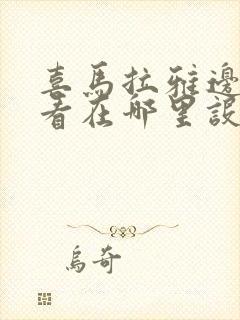 喜馬拉雅邊
看在哪里設
烏奇